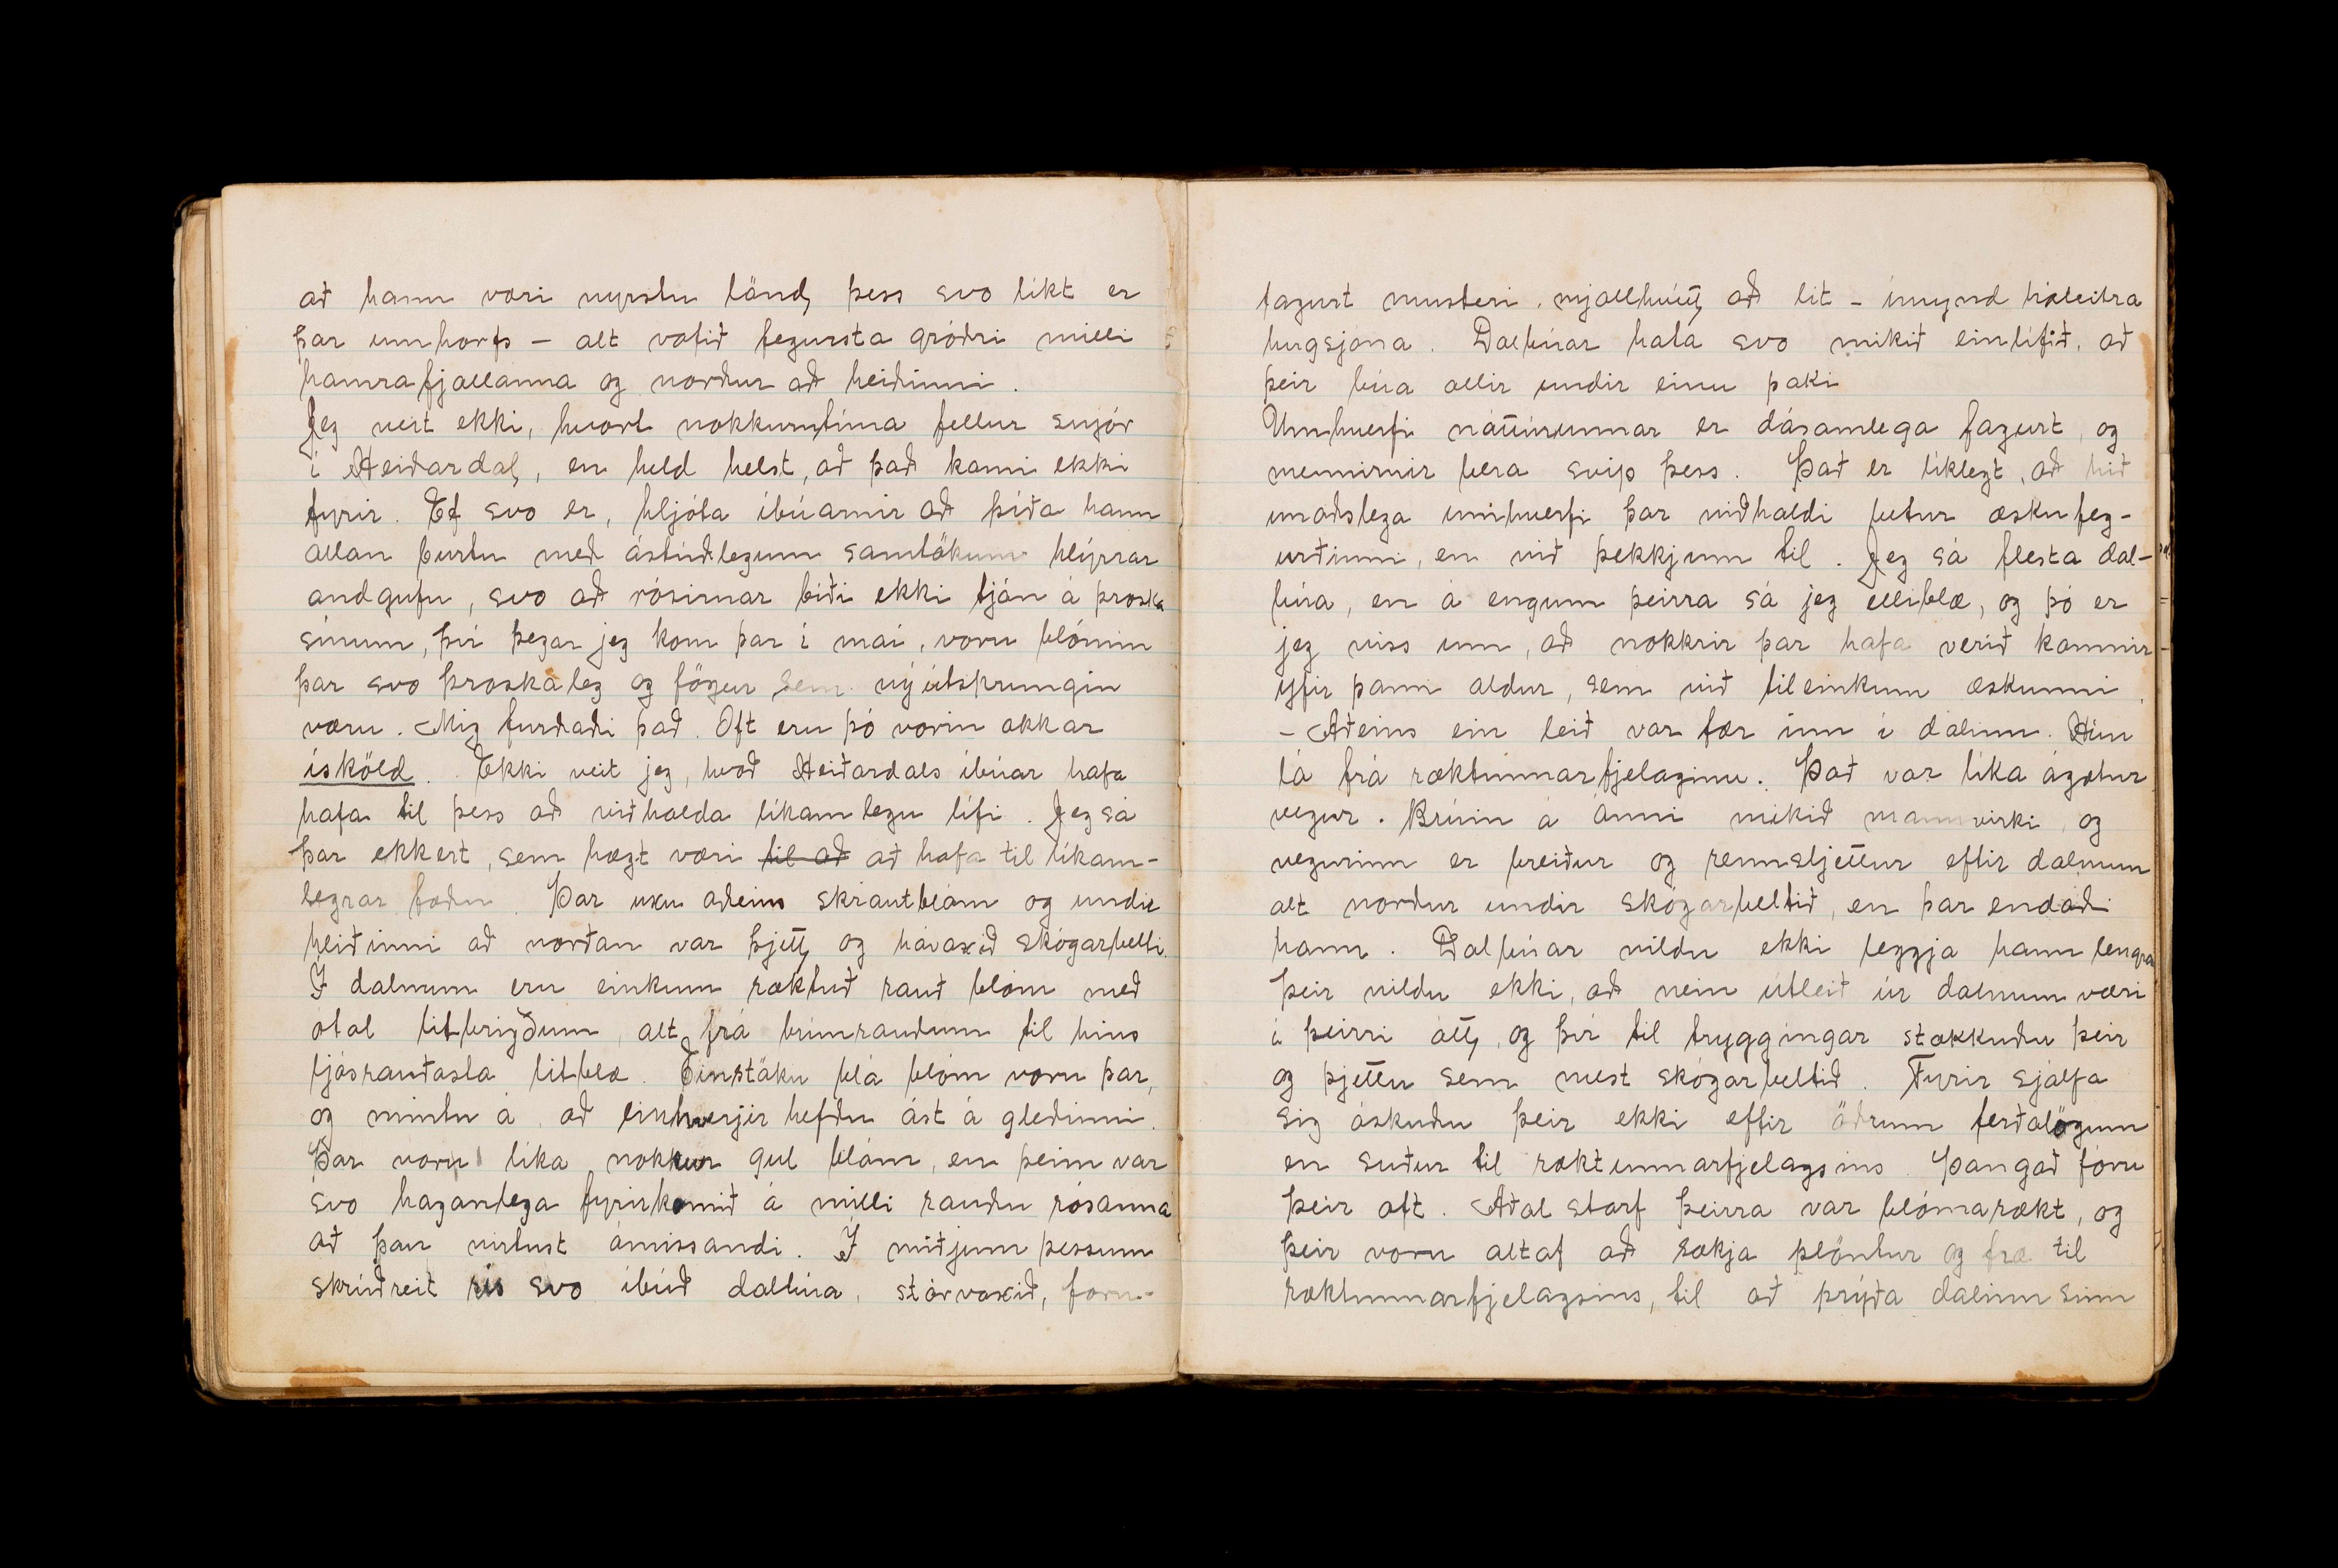 að hann væri nyrstu lönd, þess svo líkt er
þar umhorfs – alt vafið fegursta gróðri milli
hamrafjallanna og norður að heiðinni.
Jeg veit ekki, hvort nokkurntíma fellur snjór
í Heiðardal, en held helst, að það komi ekki
fyrir. Ef svo er, hljóta íbúarnir að þíða hann
allan burtu með ástúðlegum samtökum hlýrrar
andgufu, svo að rósirnar bíði ekki tjón á þroska
sínum, því þegar jeg kom þar í maí, voru blómin
þar svo þroskaleg og fögur sem nýútsprungin
væru. Mig furðaði það. Oft eru þó vorin okkar
ísköld. Ekki veit jeg, hvað Heiðardals íbúar hafa
hafa til þess að viðhalda líkamlegu lífi. Jeg sá
þar ekkert, sem hægt væri til að að hafa til líkam-
legrar fæðu. Þar uxu aðeins skrautblóm og undir
heiðinni að norðan var þjett, og hávaxið skógarbelti.
Í dalnum eru einkum ræktuð rauð blóm með
ótal litbrigðum, alt frá brúnrauðum til hins
ljósrauðasta litblæ. Einstöku blá blóm voru þar,
og mintu á, að einhverjir hefðu ást á gleðinni.
Þar voru líka nokkur gul blóm, en þeim var
svo haganlega fyrirkomið á milli rauðu rósanna
að þau virtust ómissandi. Í miðjum þessum
skrúðreit rís svo íbúð dalbúa, stórvaxið, forn-
fagurt musteri, mjallhvítt, að lit – ímynd háleitra
hugsjóna. Dalbúar hata svo mikið einlífið, að
þeir búa allir undir einu þaki
Umhverfi náttúrunnar er dásamlega fagurt, og
mennirnir bera svip þess. Það er líklegt, að hið
unaðslega umhverfi þar viðhaldi betur æskufeg-
urðinni, en við þekkjum til. Jeg sá flesta dal-
búa, en á engum þeirra sá jeg elliblæ, og þó er
jeg viss um, að nokkrir þar hafa verið komnir
yfir þann aldur, sem við tileinkum æskunni.
– Aðeins ein leið var fær inn í dalinn. Hún
lá frá ræktunnarfjelaginu. Það var líka ágætur
vegur. Brúin á ánni mikið mannvirki, og
vegurinn er breiður og rennsljettur eftir dalnum
alt norður undir skógarbeltið, en þar endaði
hann. Dalbúar vildu ekki leggja hann lengra
Þeir vildu ekki, að nein útleið úr dalnum væri
í þeirri átt, og því til tryggingar stækkuðu þeir
og þjettu sem mest skógarbeltið. Fyrir sjálfa
sig óskuðu þeir ekki eftir öðrum ferðalögum
en suður til ræktunnarfjelagsins. Þangað fóru
þeir oft. Aðal starf þeirra var blómarækt, og
þeir voru altaf að sækja plöntur og fræ til
ræktunnarfjelagsins, til að prýða dalinn sinn